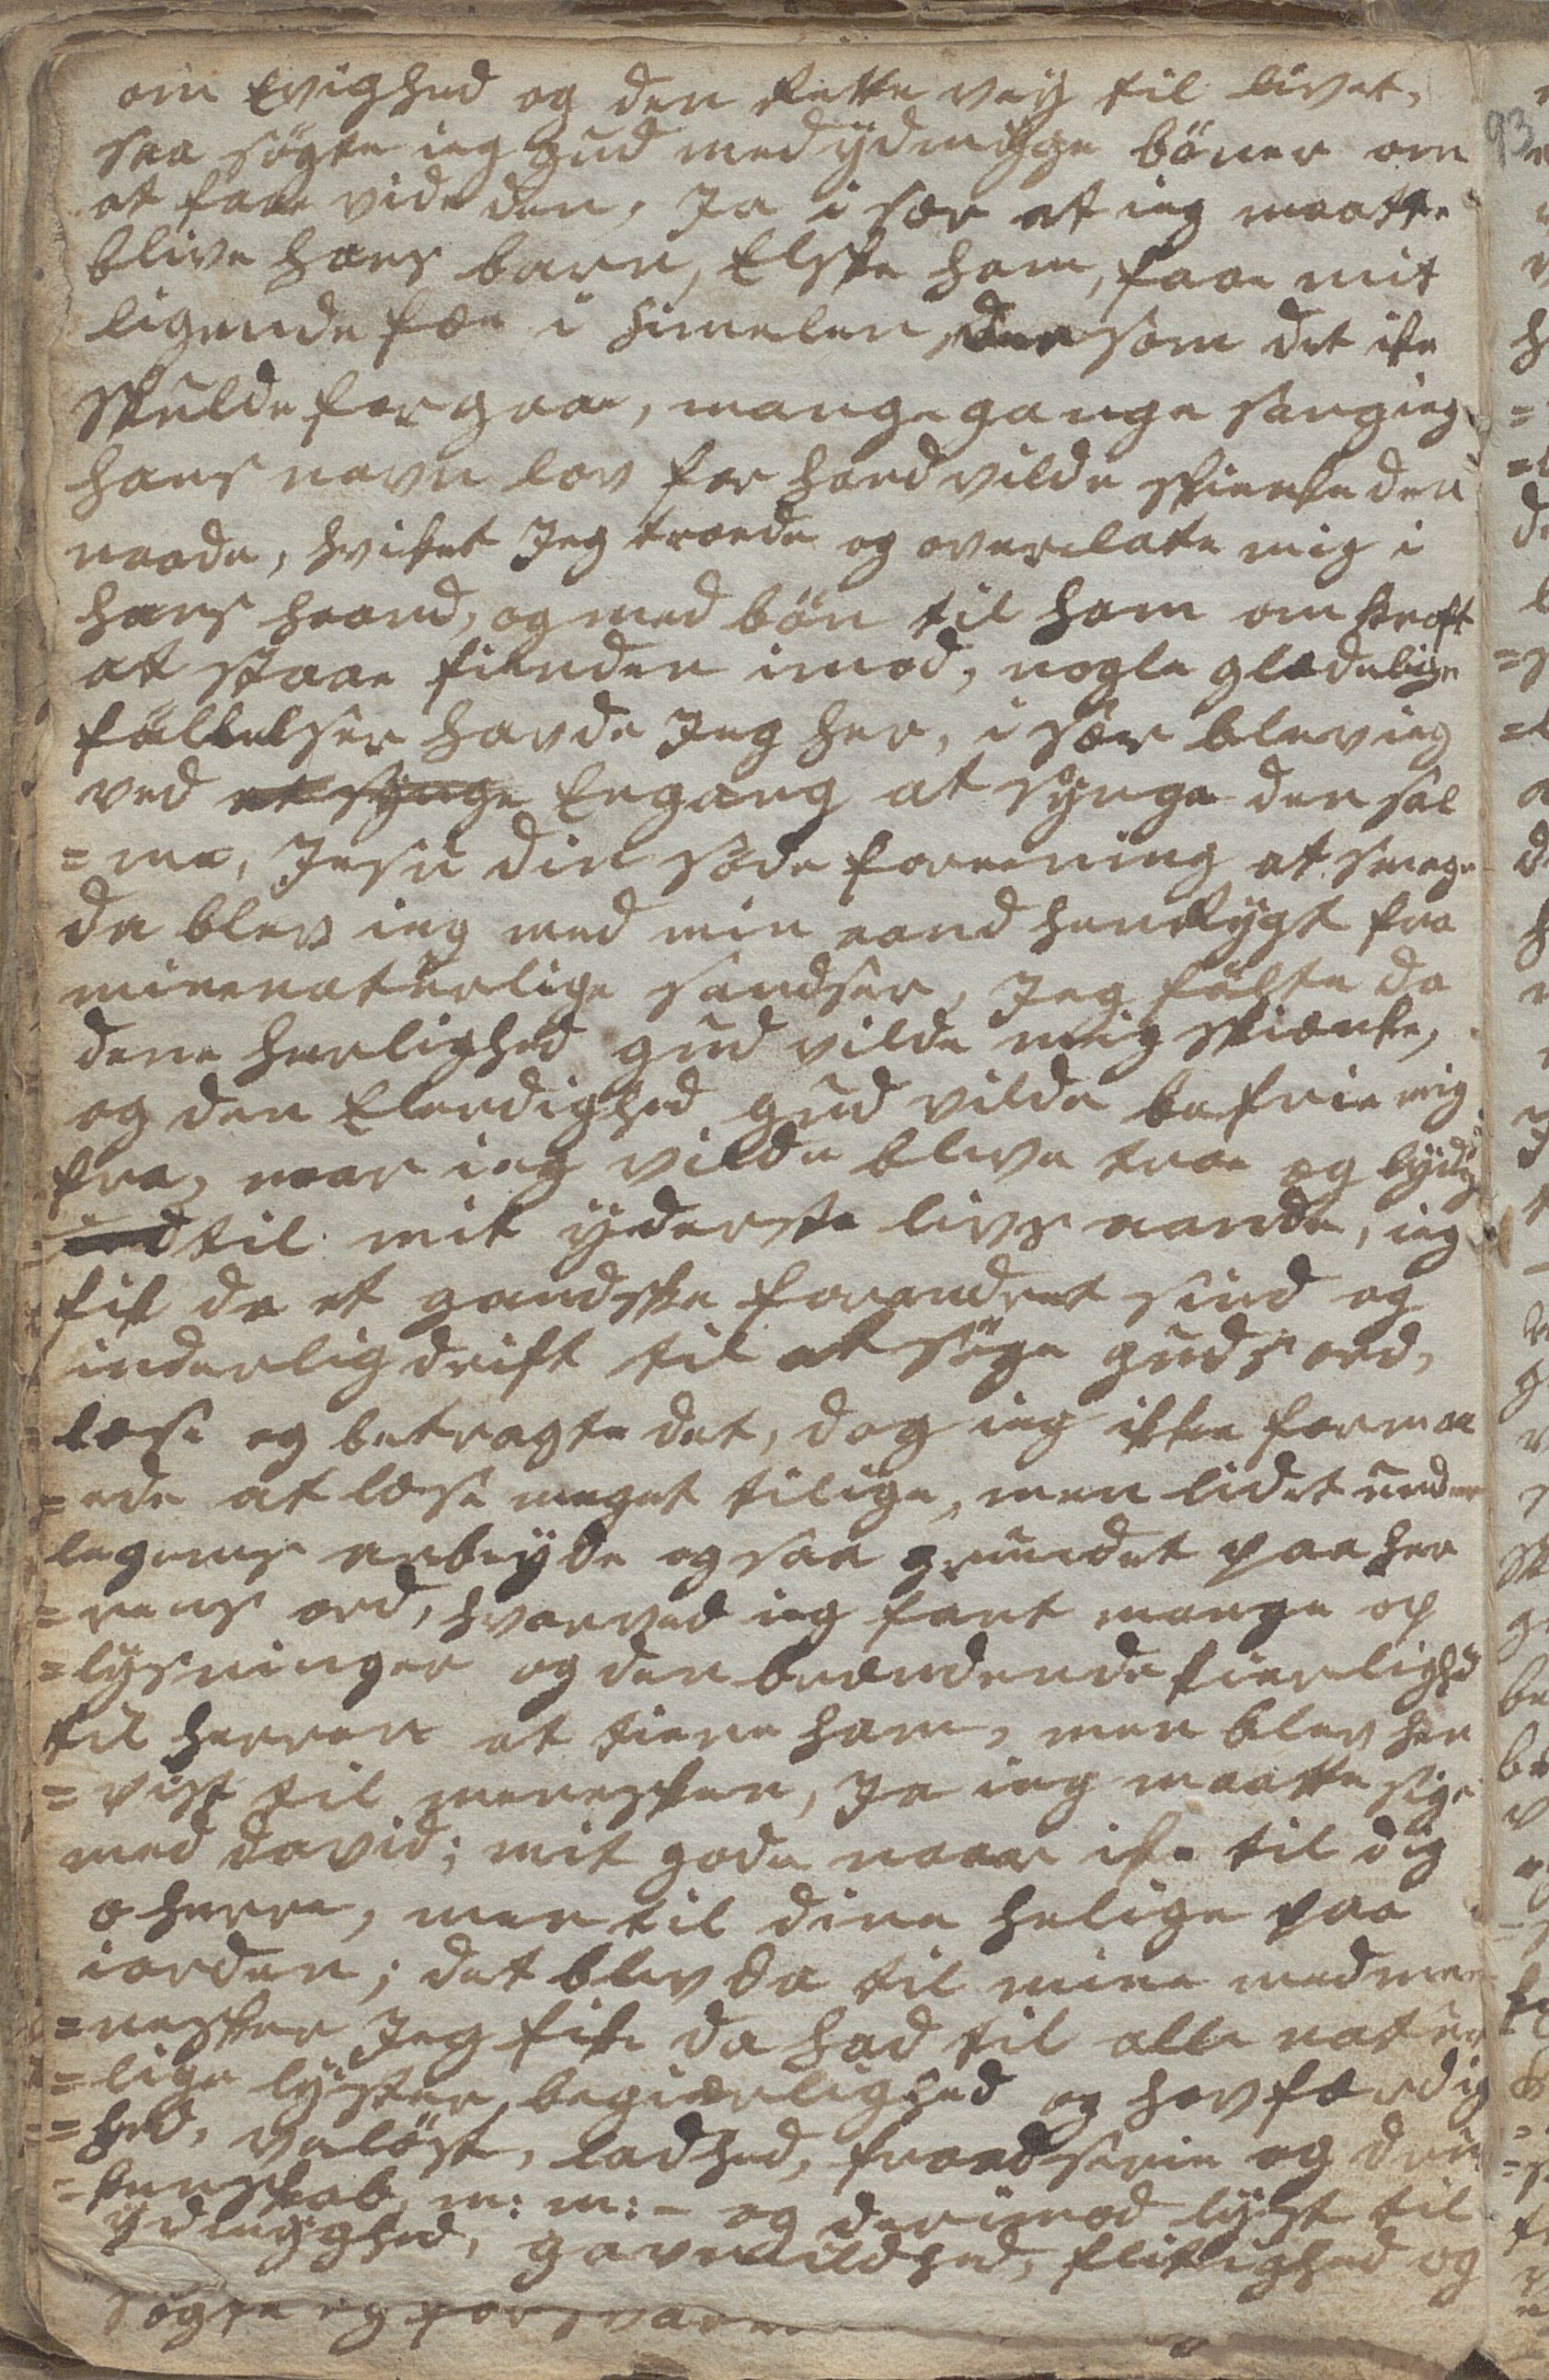 om Evighed og den Rette vey til livet,
saa søgte ieg Gud med ydmÿge bönner om
at faae vide den, Ja i sær at ieg maatte
blive hans barn, Elske ham, faae mit
ligende fæe i Himelen, som det ike
skulde forgaae, mange gange sang ieg
hans navn lov for hand vilde skienke den
naade, hvilket Jeg troede og overlate mig i
hans haand, og med bön til ham om kraft
at staae fienden imod, nogle glædelige
föllelser havde Jeg her, i sær blev ieg
ved at synge Engang at sÿnge den sal
=me, Jesu din søde forening at smage
da blev ieg med min aand henrÿgt fra
mine naturlige sandser, Jeg fölte da
dene herlighed gud vilde mig skiænke,
og den Elendighed gud vilde befrie mig
fra, naar ieg vilde blive troe og lydig
ind til mit ÿderste livs aande, ieg
fik da et gandske forandret sind og
inderlig drift til at söge guds ord,
læse og betragte det, dog ieg ikke forma
=ede at læse meget tilige, men lidet under
legems arbeyde og saa grundet paa her
=rens ord, hvorved ieg fant mange op
=lysninger og den brændende kierlighed
til herren at tiene ham, men blev hen
=vist til menesken, Ja ieg maatte sige
med david; mit gode naaer ike til dig
o herre, men til dine helige paa
iorden; det blev da til mine medmen
=nesker Jeg fik da had til alle natur
=lige lyster, begiærlighed og hovfærdig
=hed, vellöst, ladhed, fraadserie og dru
=kenskab, m: m: - og derimod lÿst til
ÿdmÿghed, gavmildhed, flitighed og
93